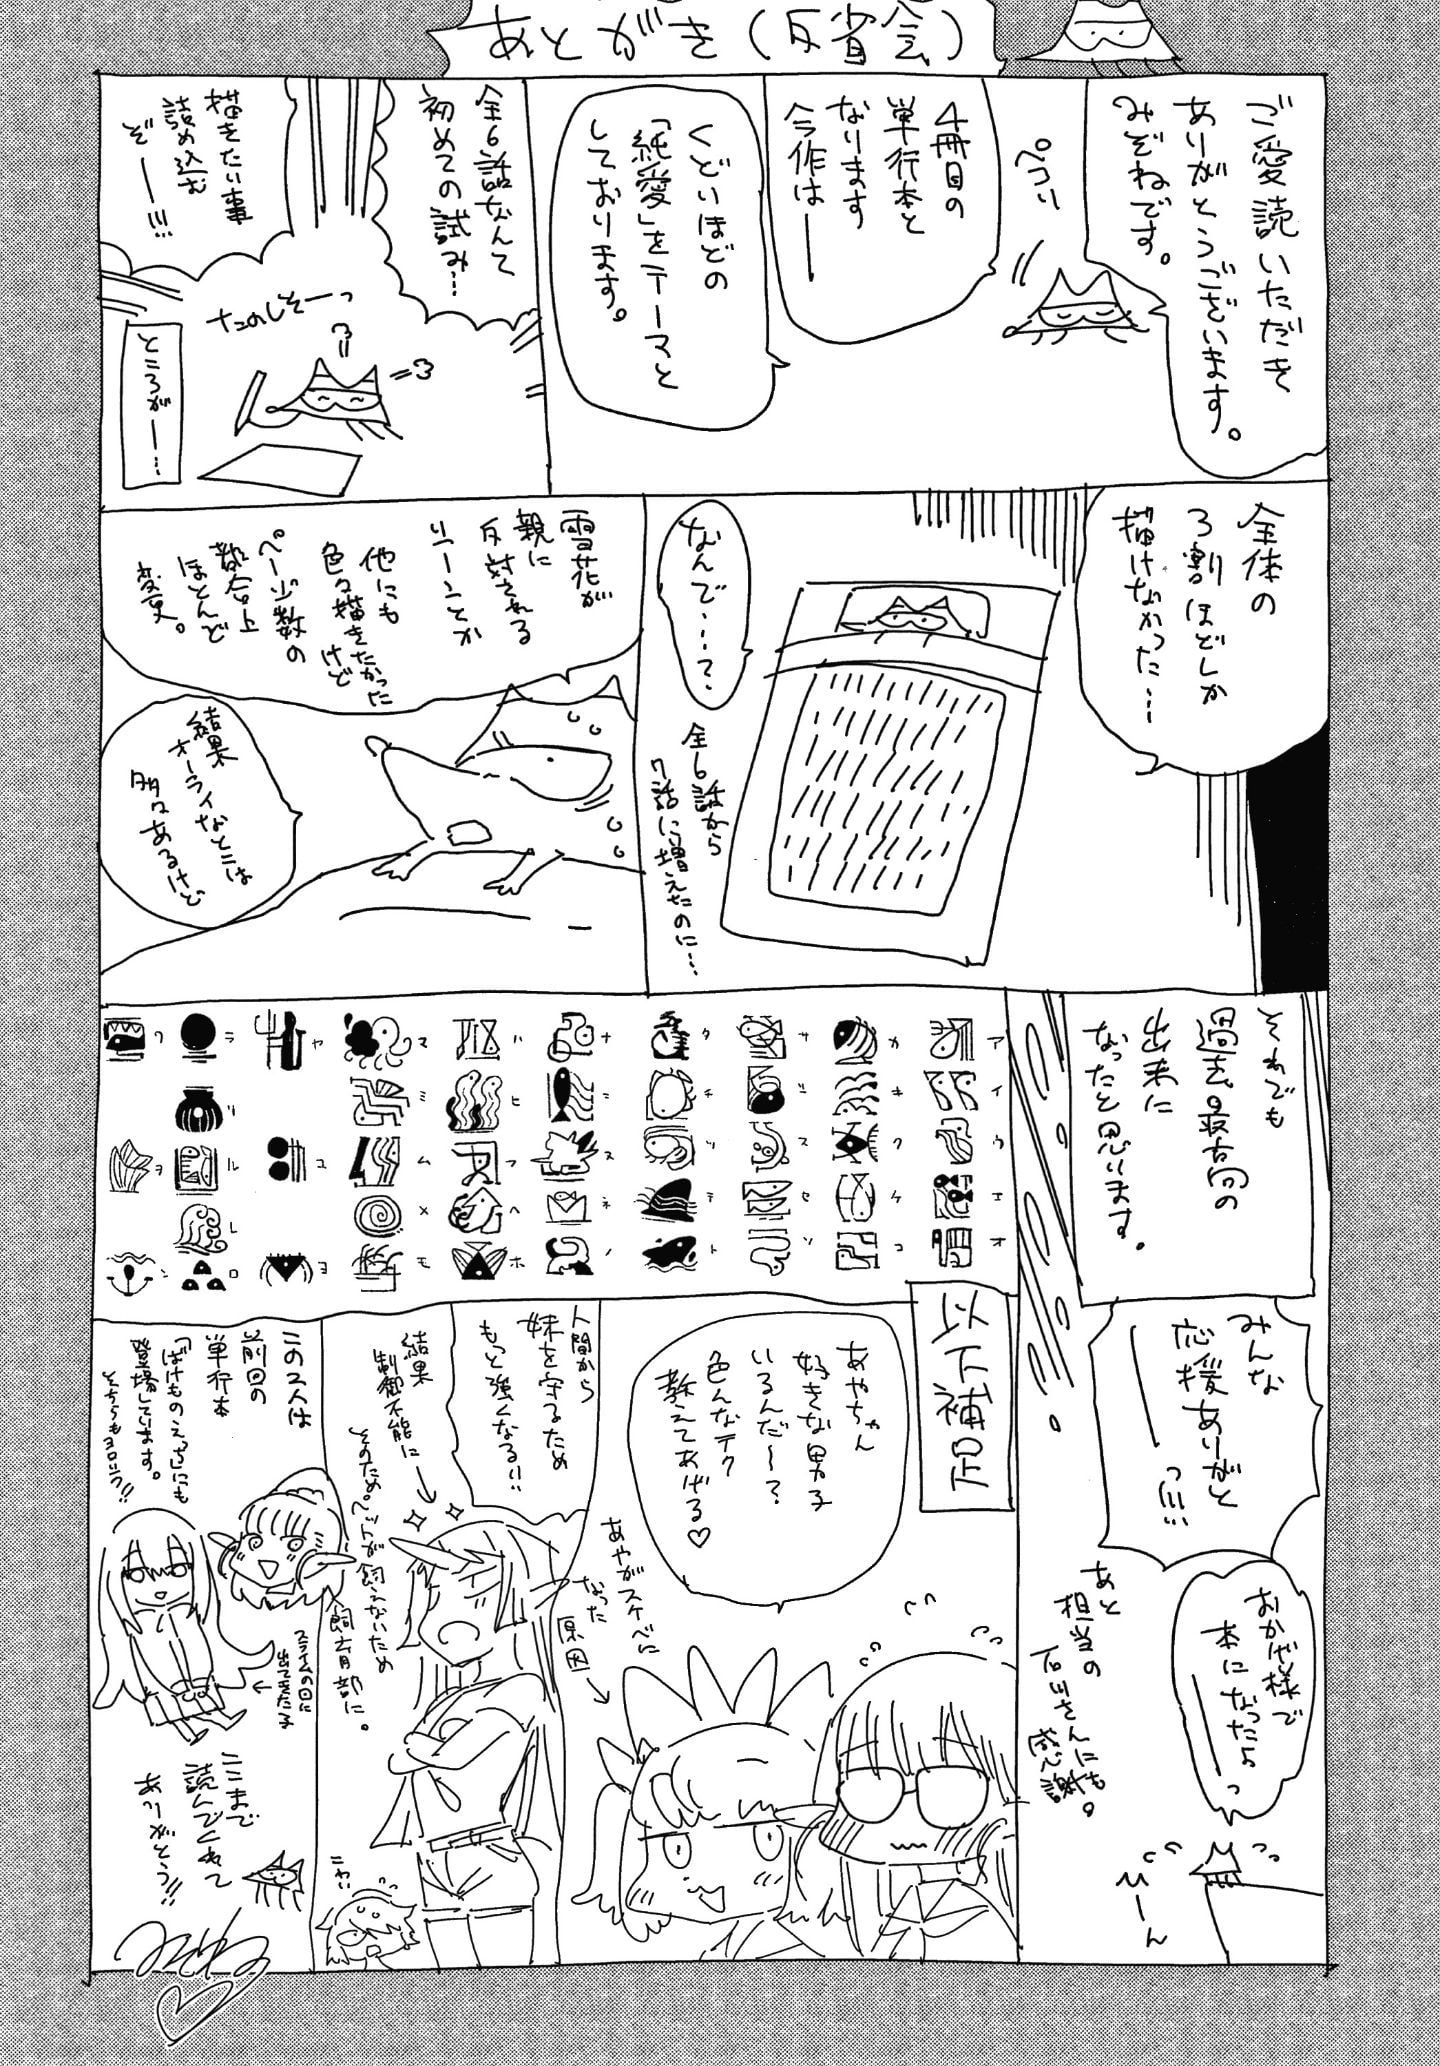 あとがき(反省会)
ご愛読いただき
ありがとうございます。
みぞねです。
ペコリ
4冊目の
単行本と
なります
今作は――
くどいほどの
「純愛」を
テーマと
しております。
全6話なんて
初めての試み…
描きたい事
詰め込む
ぞ――!!!
たのしそーっ
ところが――…
全体の
3割ほどしか
描けなかった……
なんで……?
全6話から
7話に増えたのに…
雪花が
親に
反対される
シーンとか
他にも
色々描きたかった
けど
ページ数の
都合上
ほとんど
変更。
結果
オーライなとこは
多々あるけど
それでも
過去最高の
出来に
なったと思います。
みんな
応援ありがと
――っ!!!
おかげ様で
本になったよ
――っ
あと
担当の
石川さんにも
感謝。
ひーん
ア
イ
ウ
エ
オ
カ
キ
ク
ケ
コ
サ
シ
ス
セ
ソ
タ
チ
ツ
テ
ト
ナ
ニ
ヌ
ネ
ノ
ハ
ヒ
フ
ヘ
ホ
マ
ミ
ム
メ
モ
ヤ
ユ
ヨ
ラ
リ
ル
レ
ロ
ワ
ヲ
ン
以下補足
あやちゃん
好きな男子
いるんだ〜?
色んなテク
教えてあげる♡
あやがスケベに
なった
原因→
人間から
妹を守るため
もっと強くなる!!
結果
制御不能に→
そのためペットが飼えないため
飼育部に。
この2人は
前回の
単行本
「ばけものえっち」にも
登場しています。
そちらもヨロシク!!
←スライムの回に
出てきた子
ここまで
読んでくれて
ありがとう!!
みぞね♡